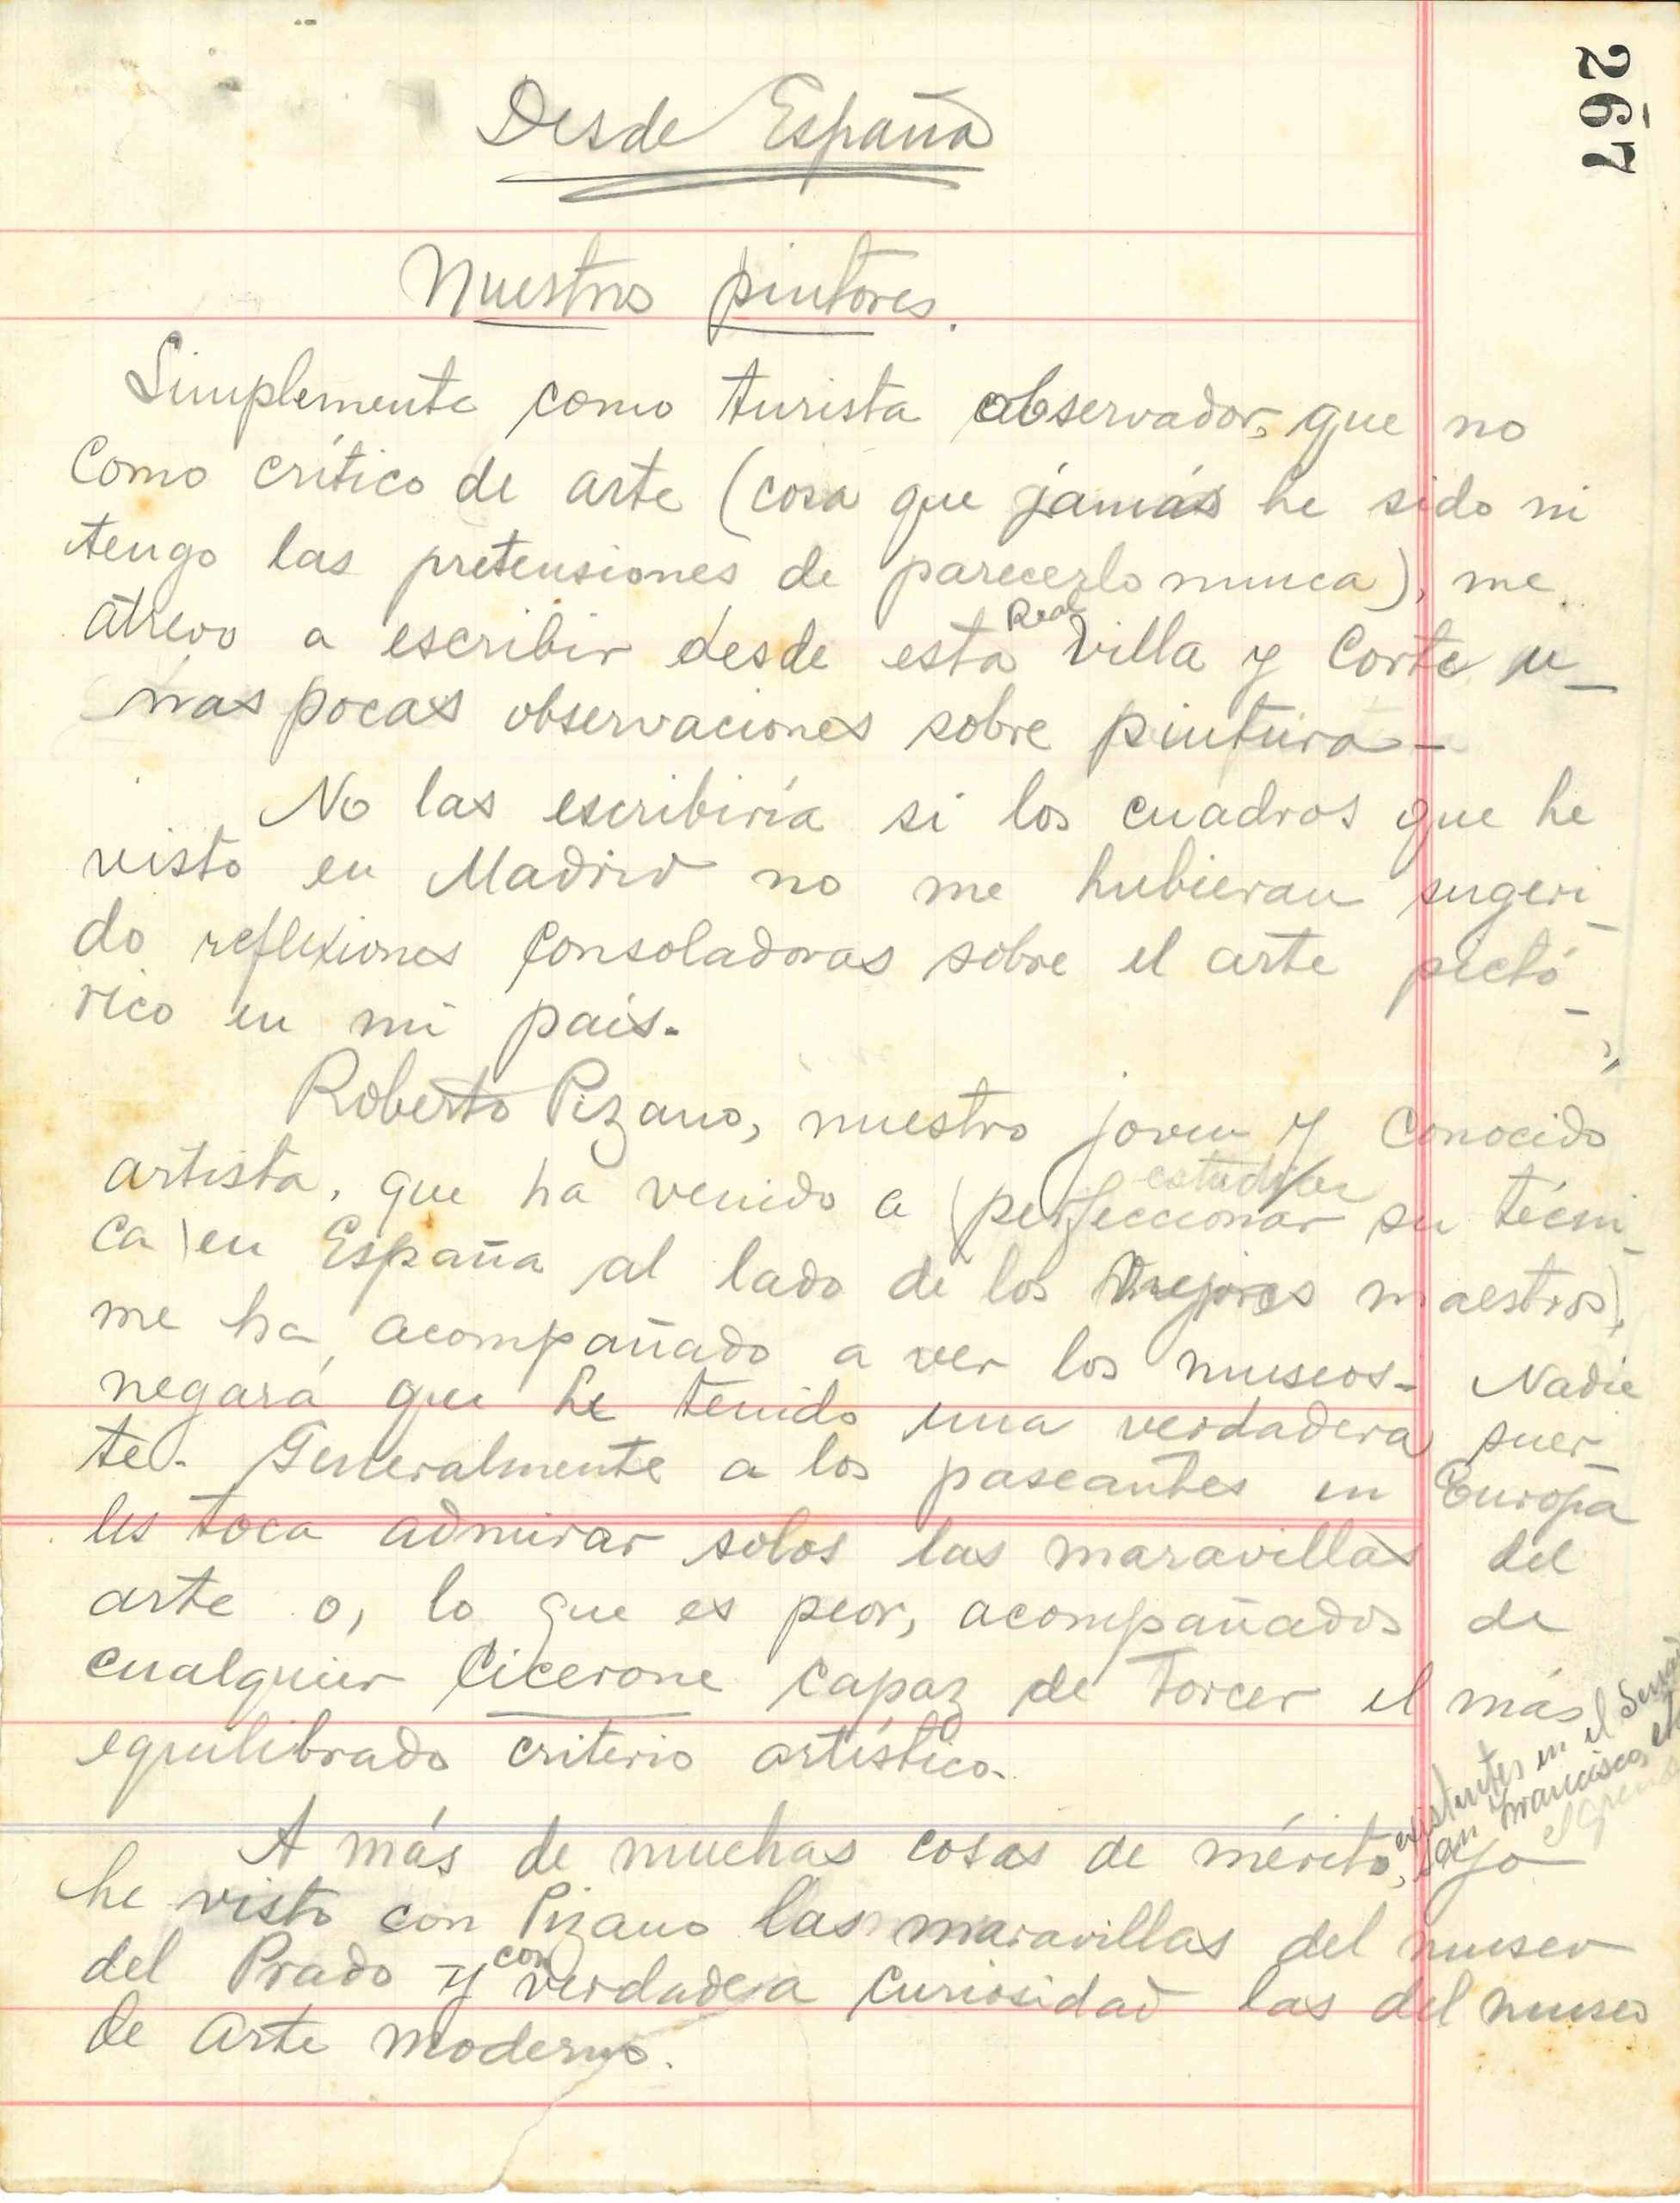 267
Desde España
Nuestros pintores.
Simplemente como turista observador, que no
como crítico de arte (cosa que jamás he sido ni
tengo las pretensiones de parecerlo nunca), me
atrevo a escribir desde esta Real Villa y Corte u-
nas pocas observaciones sobre pintura-
No las escribiría si los cuadros que he
visto en Madrid no me hubieran sugeri-
do reflexiones consoladoras sobre el arte pictó-
rico en mi país.
Roberto Pizano, nuestro joven y conocido
estudiar
artista, que ha venido a (perfeccionar su técni-
ca) en España al lado de los mejores maestros),
me ha acompañado a ver los museos. Nadie
negará que he tenido una verdadera suer-
te. Generalmente a los paseantes en Europa
les toca admirar solos las maravillas del
arte o, lo que es peor, acompañados de
cualquier cicerone capaz de torcer el más
equilibrado criterio artístico.
existentes en el
San Francisco, el
A más de muchas cosas de mérito, yo
he visto con Pizano las maravillas del museo
del Prado y con verdadera curiosidad las del museo
de Arte moderno.